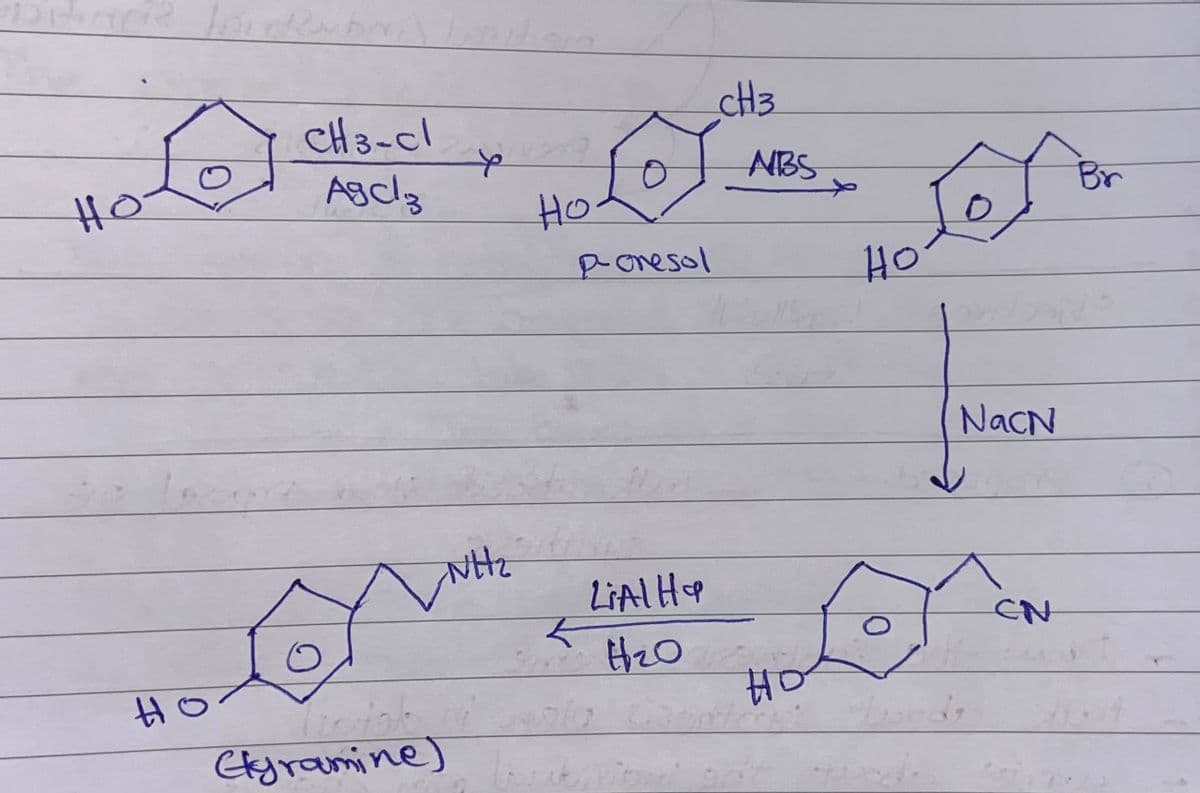 CH3-Cl
AgCl3
HO
CH3
HO
p-cresol
NBS
Br
HO
NaCN
CN
HO
LiAlH4
H2O
NH2
HO
(tyramine)